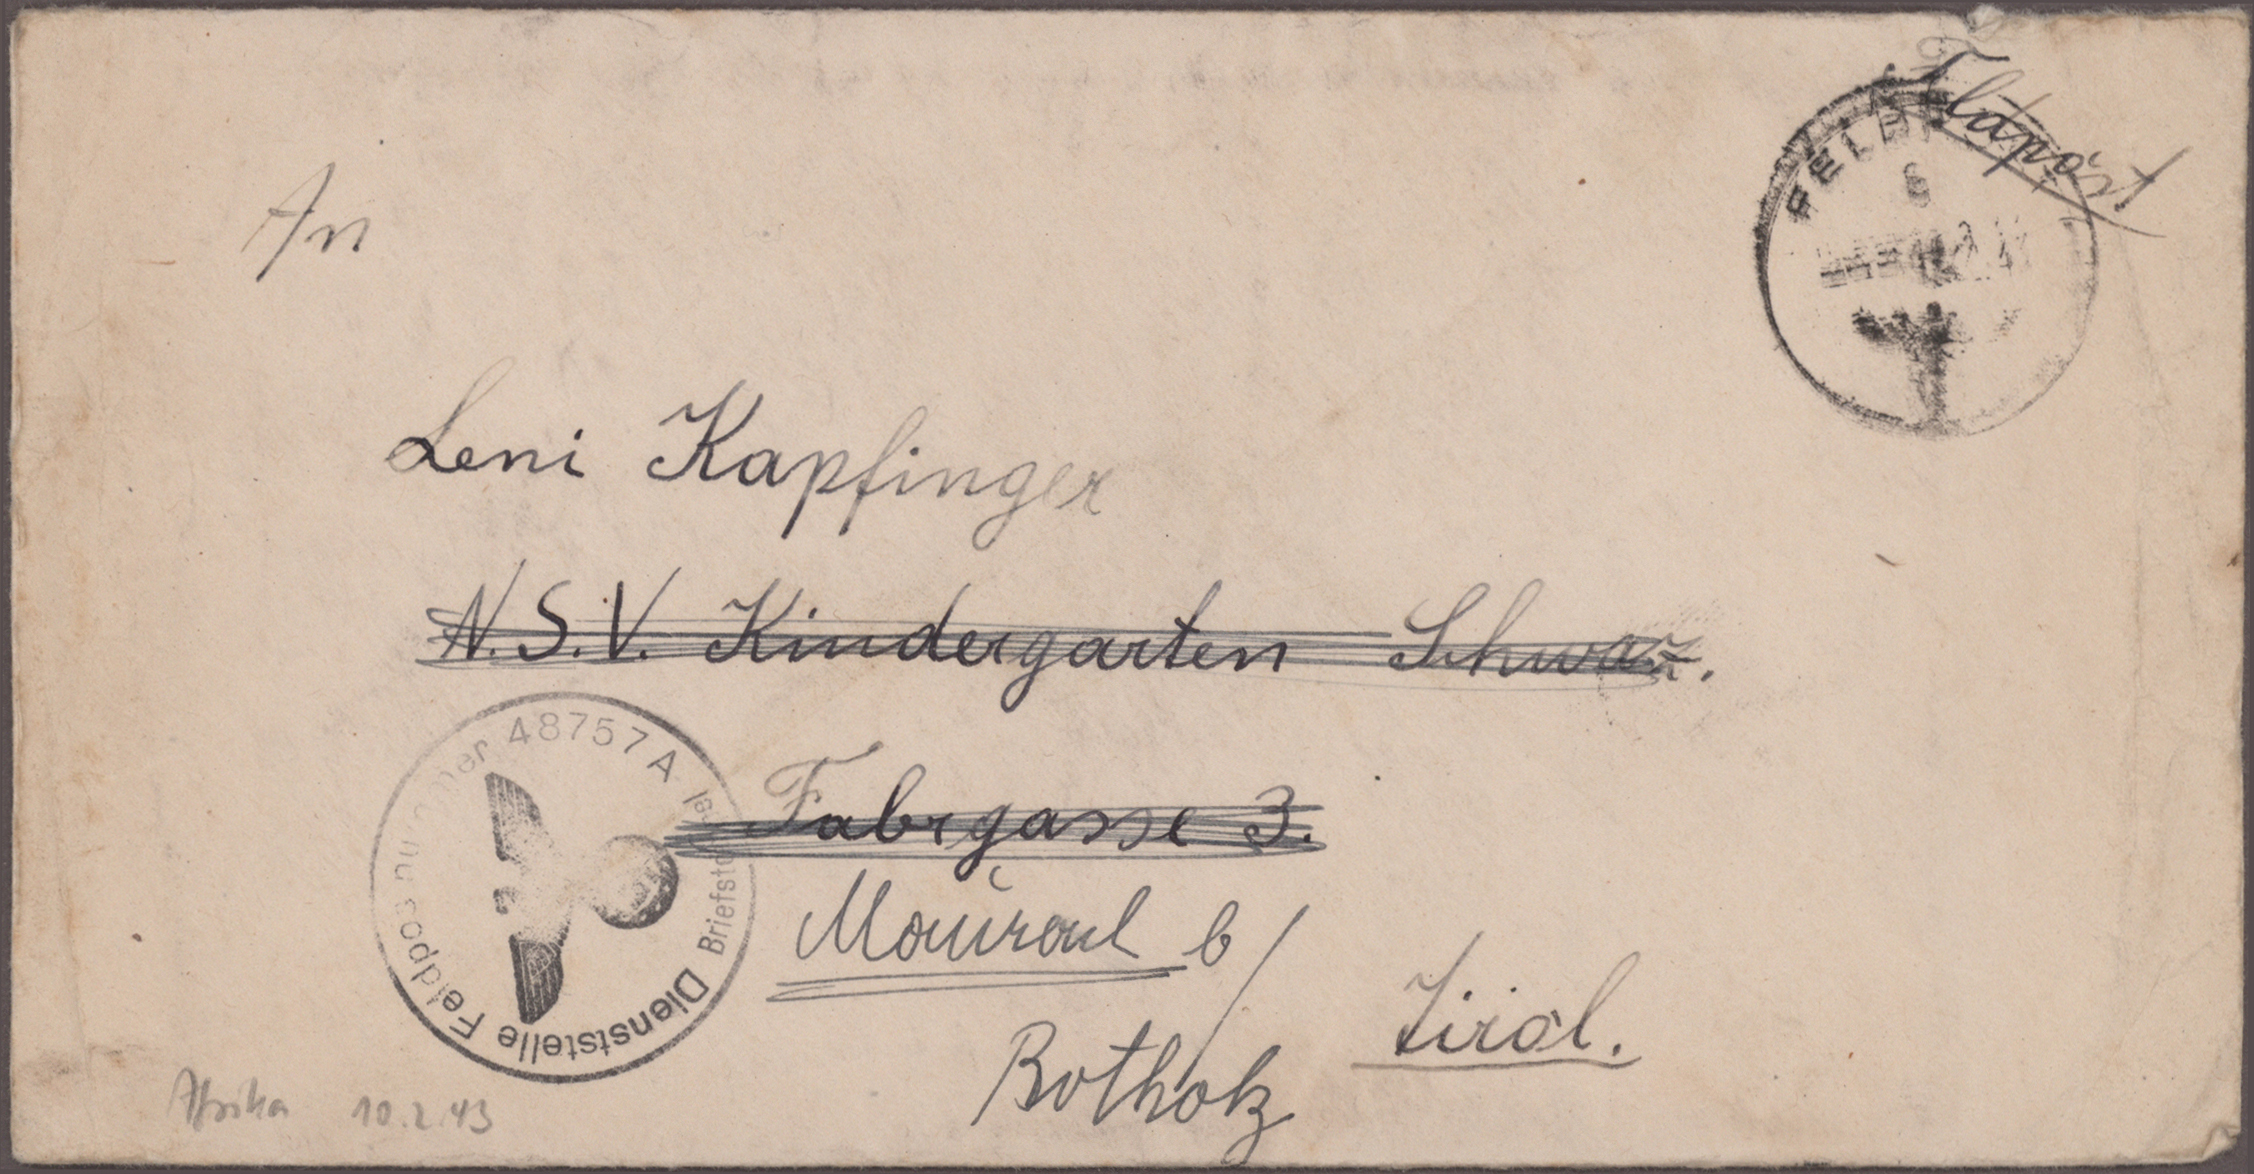 Feldpost
FELDP
An
Leni Kapfinger
N.S.V. Kindergarten Schwaz.
Fabrgasse 3.
b/
Rotholz
Tirol.
Dienststelle Feldpostnummer 48757 A
Briefst
Afrika 10.2.43